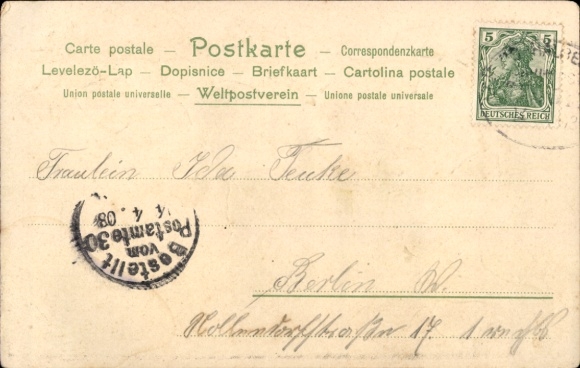 Carte postale — Postkarte — Correspondenzkarte
Levelezö-Lap — Dopisnice — Briefkaart — Cartolina postale
Union postale universelle — Weltpostverein — Unione postale universale
5 5
DEUTSCHES REICH
Fräulein Ida
Bestellt
vom
Postamte 30
4. 4. 08
Berlin W.
Nollendorfstraße 17.